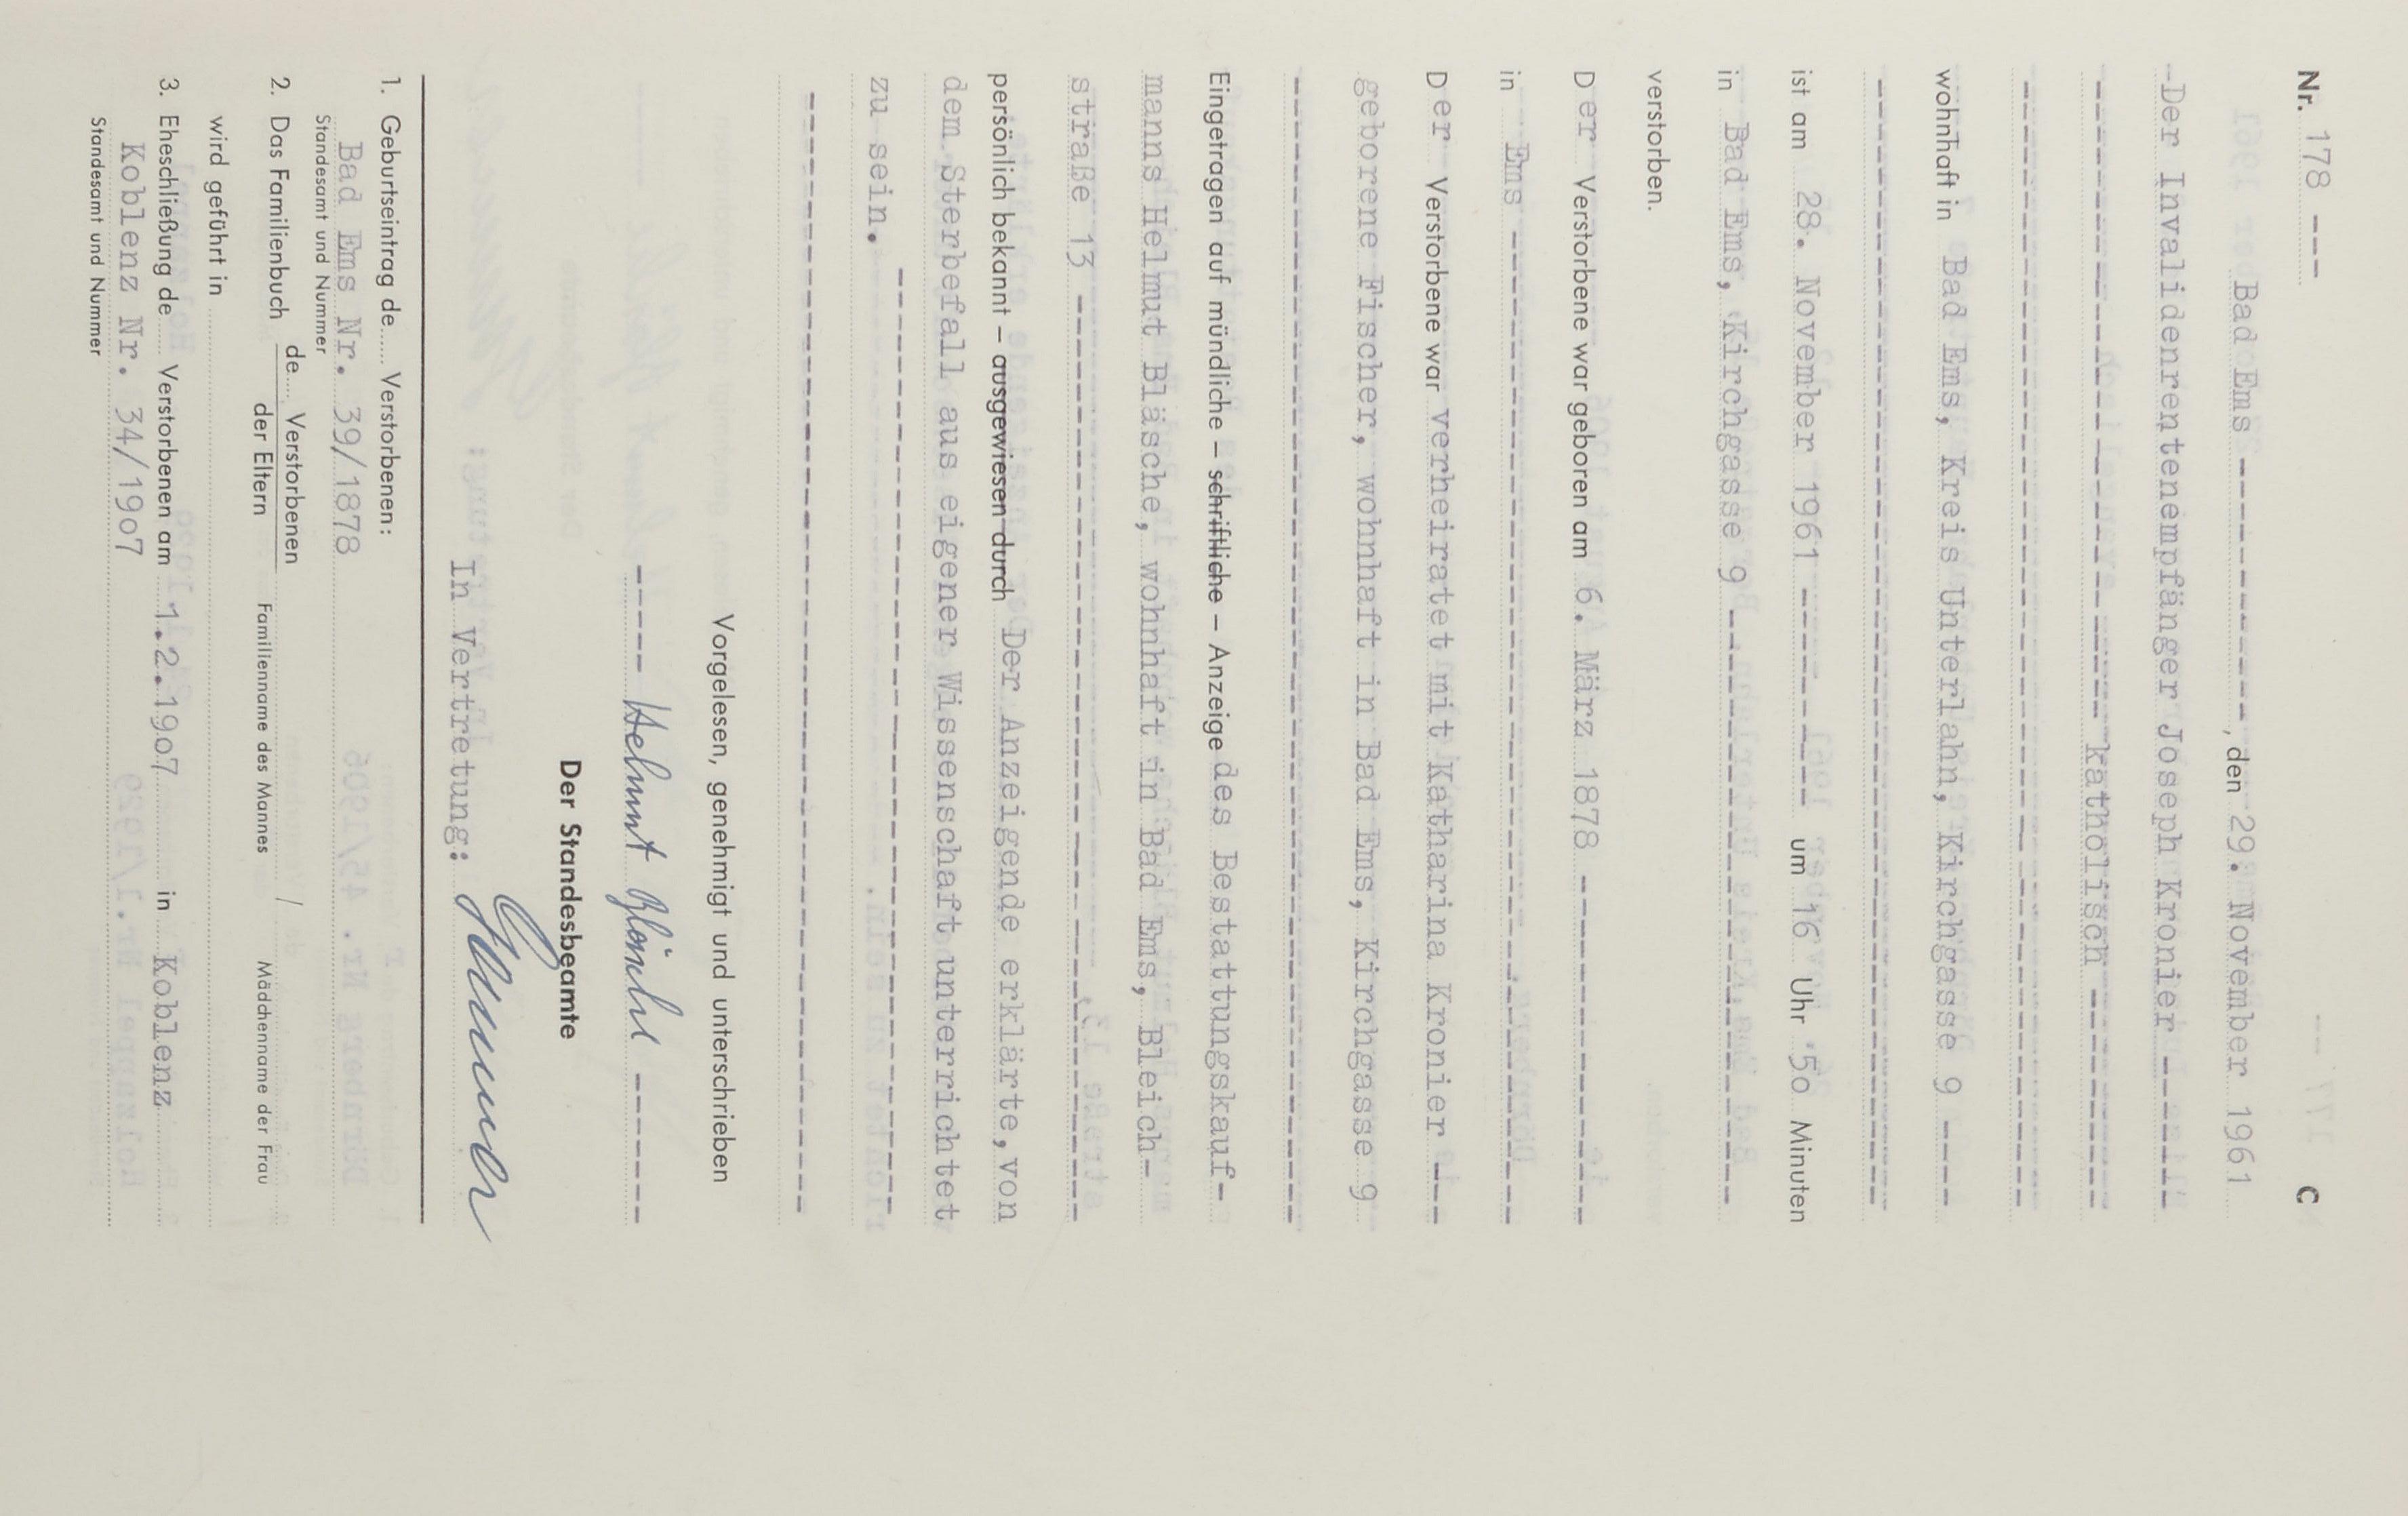 Nr. 178 --- C
Bad Ems ---------------, den 29. November 1961
--Der Invalidenrentenempfänger Joseph Kronier ------
---------------------------- katholisch ---------
------------------------------------------------
wohnhaft in Bad Ems, Kreis Unterlahn, Kirchgasse 9 ----
------------------------------------------------
ist am 28. November 1961 ---------- um 16 Uhr 50 Minuten
in Bad Ems, Kirchgasse 9 --------------------------
verstorben.
Der Verstorbene war geboren am 6. März 1878 ---------------
in Ems --------------------------------------------
Der Verstorbene war verheiratet mit Katharina Kronier ---
geborene Fischer, wohnhaft in Bad Ems, Kirchgasse 9
------------------------------------------------
Eingetragen auf mündliche – schriftliche – Anzeige des Bestattungskauf-
manns Helmut Bläsche, wohnhaft in Bad Ems, Bleich-
straße 13 ----------------------------------------
persönlich bekannt – ausgewiesen durch Der Anzeigende erklärte, von
dem Sterbefall aus eigener Wissenschaft unterrichtet
zu sein. ----------------------------------------
------------------------------------------------
Vorgelesen, genehmigt und unterschrieben
----- Helmut Bläsche -------
Der Standesbeamte
In Vertretung:
1. Geburtseintrag de..... Verstorbenen:
Bad Ems Nr. 39/1878
Standesamt und Nummer
2. Das Familienbuch de.... Verstorbenen
der Eltern Familienname des Mannes / Mädchenname der Frau
wird geführt in
3. Eheschließung de..... Verstorbenen am 1.2.1907 in Koblenz
Koblenz Nr. 34/1907
Standesamt und Nummer